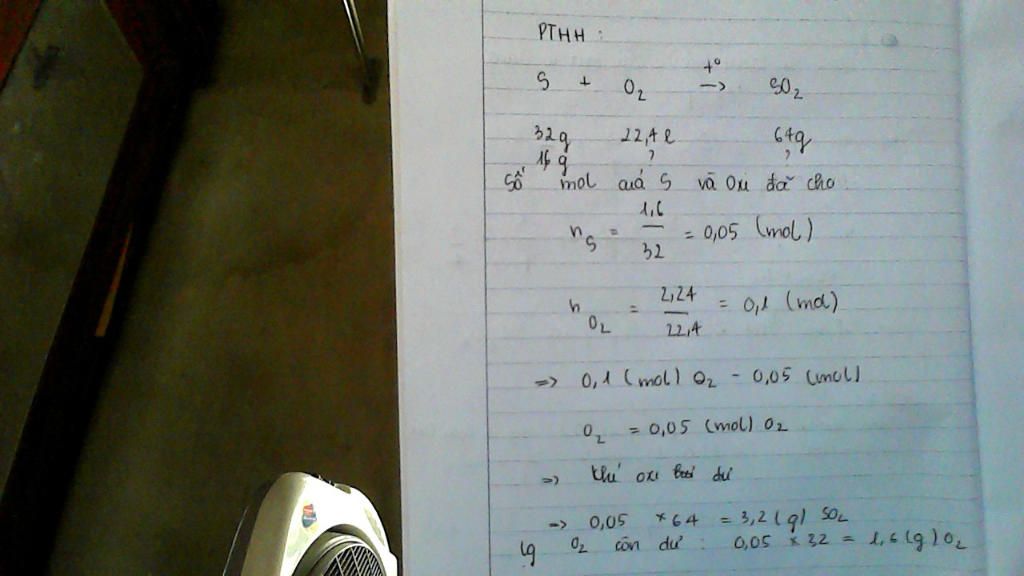 PTHH :
S + O2 t° → SO2
32g 22,4 l 64g
16 g ? ?
Số mol cuả S và Oxi đã cho :
nS = 1,6 / 32 = 0,05 (mol)
nO2 = 2,24 / 22,4 = 0,1 (mol)
=> 0,1 (mol) O2 - 0,05 (mol)
O2 = 0,05 (mol) O2
=> khí oxi dư
=> 0,05 × 64 = 3,2 (g) SO2
lg O2 còn dư : 0,05 × 32 = 1,6 (g) O2